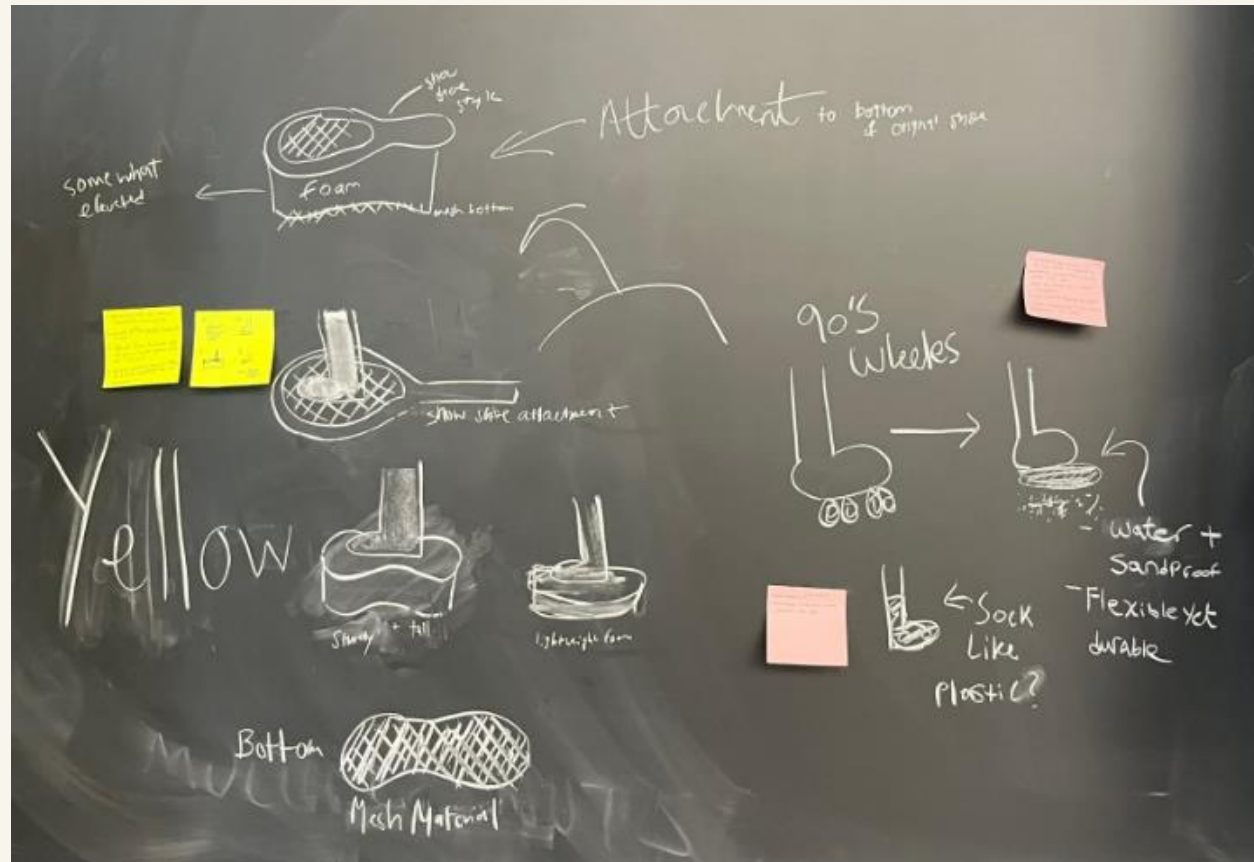 snow
shoe
style
Attachment to bottom
of original shoe
somewhat
elevated
foam
mesh bottom
90's
Wheeles
snow shoe attachment
Yellow
Sturdy + tall
lightweight foam
- Water +
Sandproof
- Flexible yet
durable
Sock
Like
Plastic?
Bottom
Mesh Material